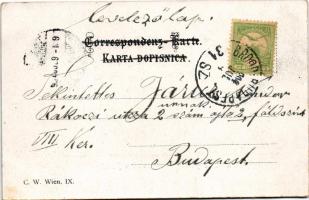 levelező lap.
Correspondenz-Karte.
KARTA DOPISNICA.
BUDAPEST
31
Tekintettes
Rákóczi utcza 2 szám ajtó 2, földszint
VIII Ker.
Budapest.
C. W. Wien. IX.